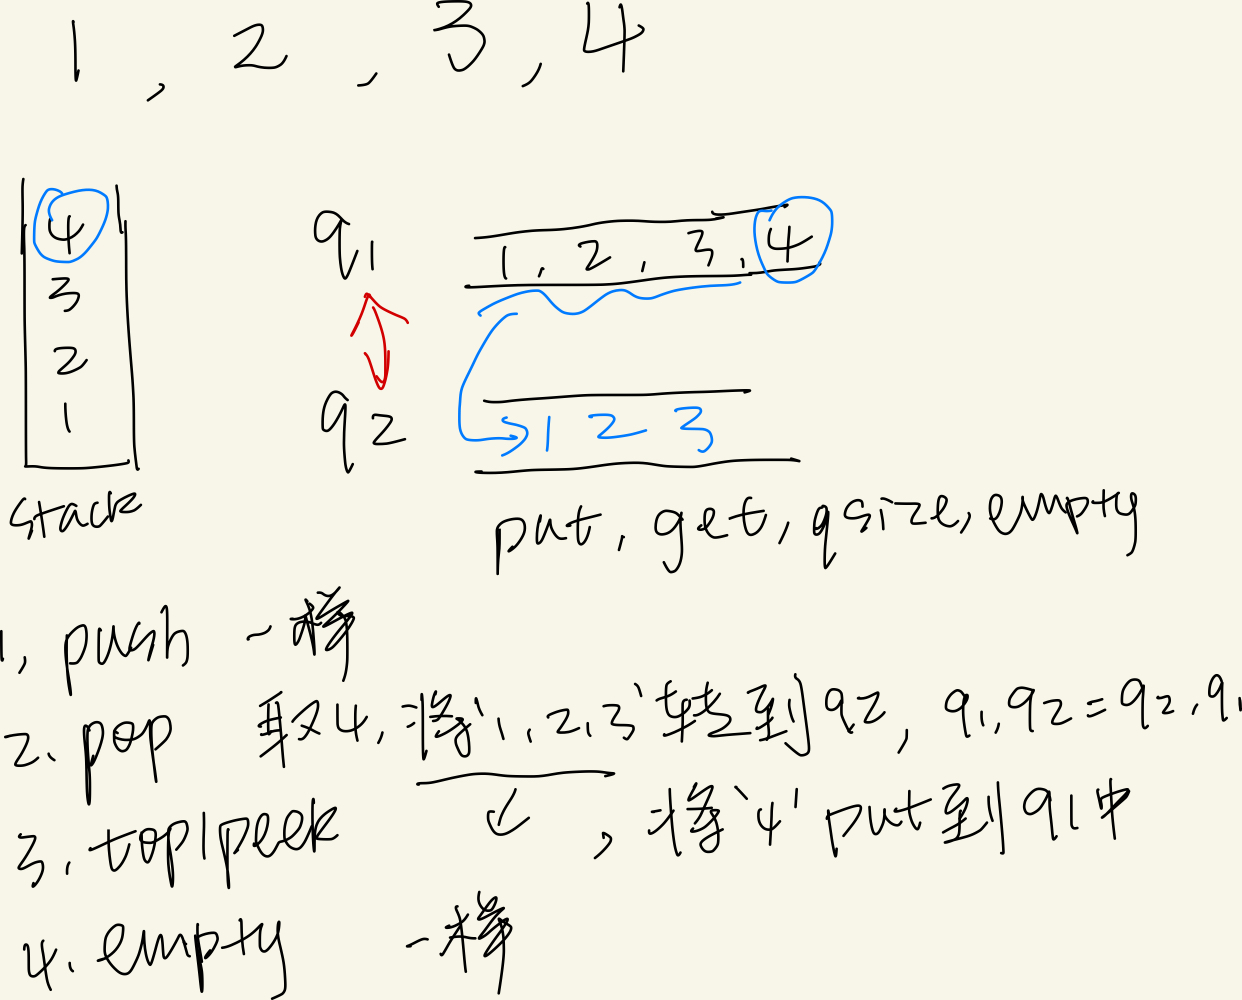 1, 2, 3, 4
4
3
2
1
stack
q1 1, 2, 3, 4
q2 1 2 3
put, get, qsize, empty
1, push 一样
2. pop 取4, 将'1, 2, 3'转到q2, q1, q2 = q2, q1
3. top/peek , 将'4' put到q1中
4. empty 一样